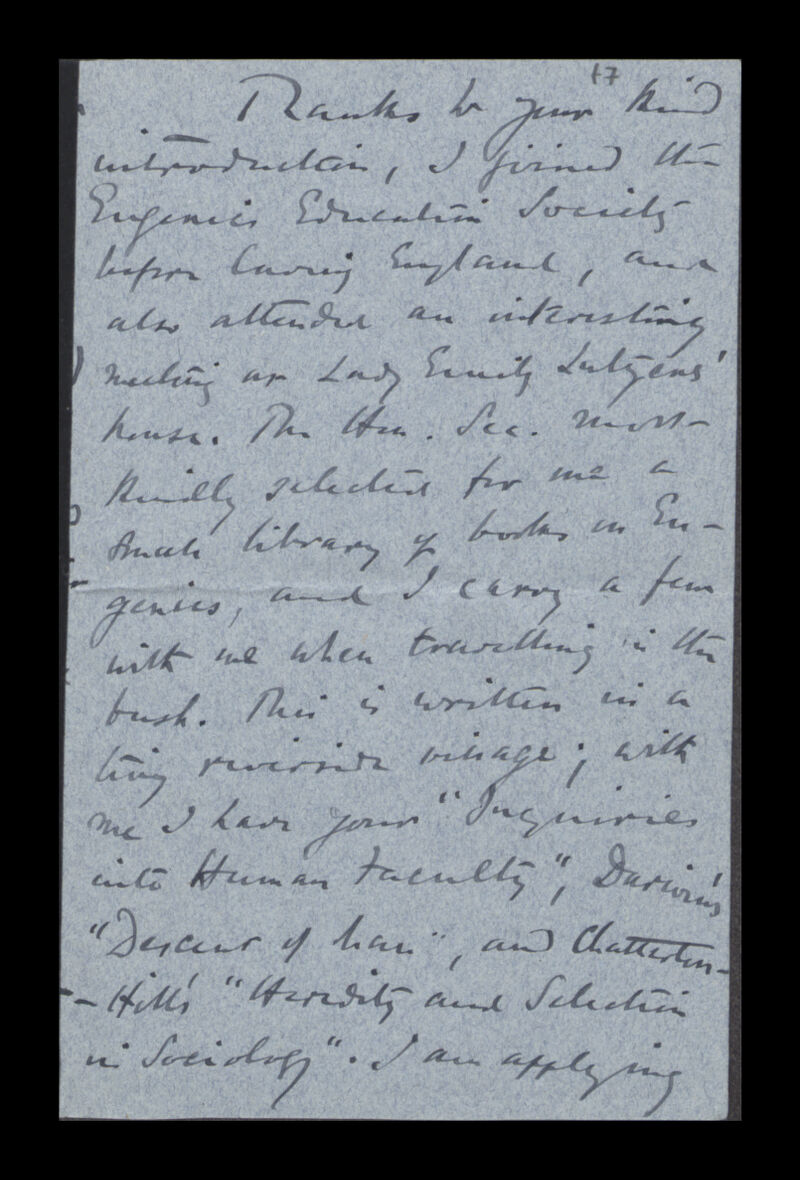 17
Thanks to your kind
introduction, I joined the
Eugenics Education Society
before leaving England, and
also attended an interesting
meeting at Lady Emily Lutyens'
house. The Hon. Sec. most
kindly selected for me a
small library of books on Eu-
genics, and I carry a few
with me when travelling in the
bush. This is written in a
tiny riverside village; with
me I have your "Inquiries
into Human Faculty", Darwin's
"Descent of Man", and Chatterton-
-Hill's "Heredity and Selection
in Sociology". I am applying